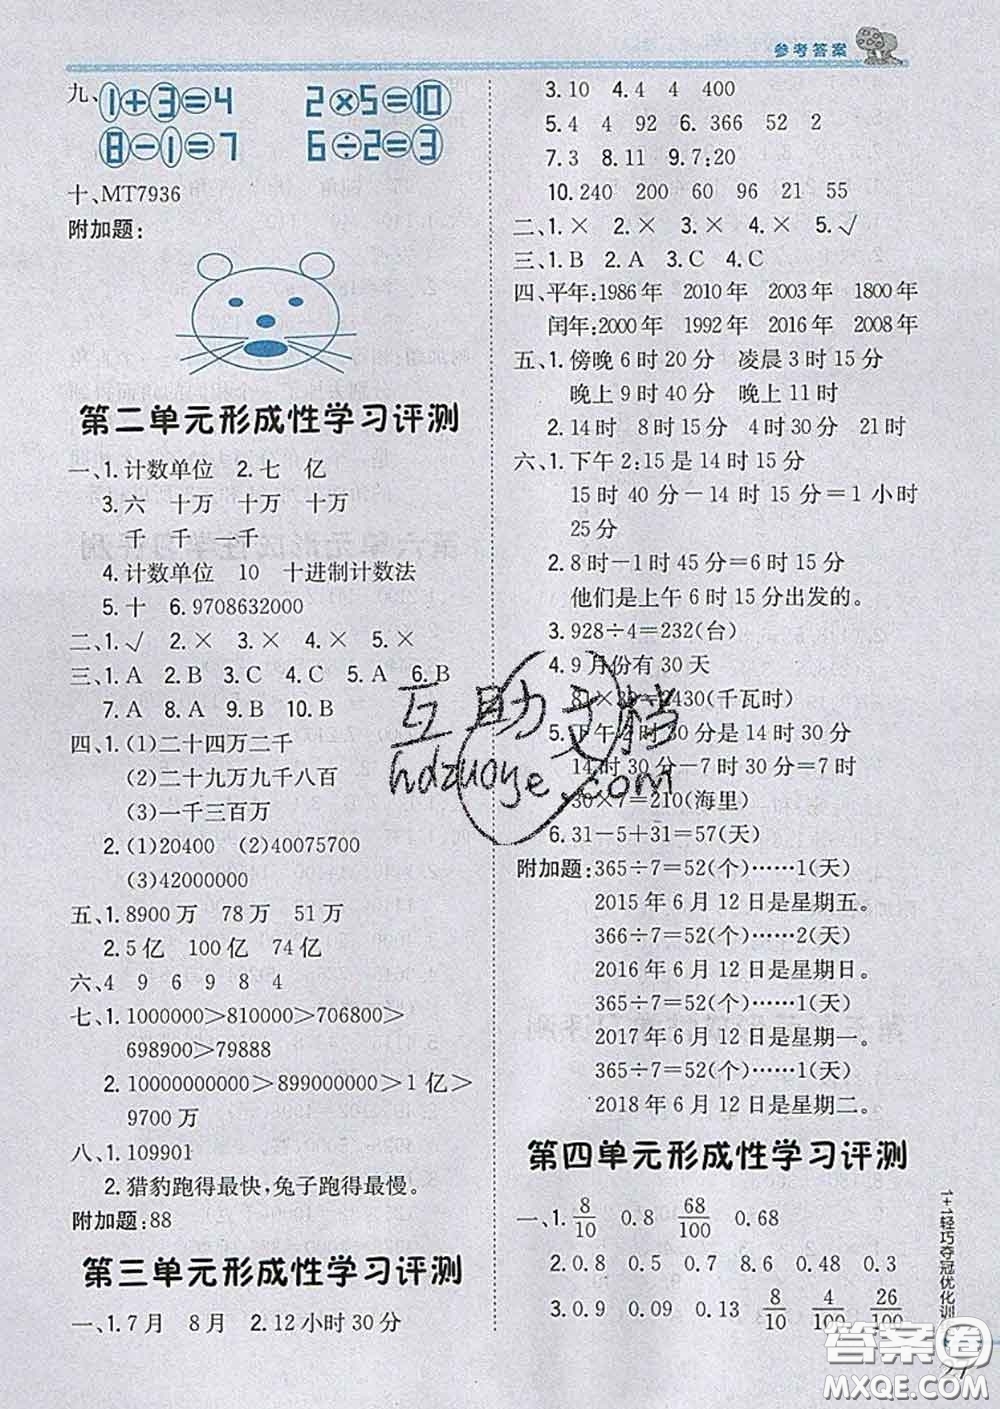 参考答案
九、1+3=4 2×5=10
8-1=7 6÷2=3
十、MT7936
附加题:
第二单元形成性学习评测
一、1.计数单位 2.七 亿
3.六 十万 十万 十万
千 千 一千
4.计数单位 10 十进制计数法
5.十 6.9708632000
二、1.√ 2.× 3.× 4.× 5.×
三、1.A 2.B 3.C 4.C 5.A 6.B
7.A 8.A 9.B 10.B
四、1.(1)二十四万二千
(2)二十九万九千八百
(3)一千三百万
2.(1)20400 (2)40075700
(3)42000000
五、1.8900万 78万 51万
2.5亿 100亿 74亿
六、4 9 6 9 8 4
七、1.1000000>810000>706800>
698900>79888
2.10000000000>899000000>1亿>
9700万
八、1.109901
2.猎豹跑得最快,兔子跑得最慢。
附加题:88
第三单元形成性学习评测
一、1.7月 8月 2.12小时30分
3.10 4.4 4 400
5.4 4 92 6.366 52 2
7.3 8.11 9.7:20
10.240 200 60 96 21 55
二、1.× 2.× 3.× 4.× 5.√
三、1.B 2.A 3.C 4.C
四、平年:1986年 2010年 2003年 1800年
闰年:2000年 1992年 2016年 2008年
五、1.傍晚6时20分 凌晨3时15分
晚上9时40分 晚上11时
2.14时 8时15分 4时30分 21时
六、1.下午2:15是14时15分
15时40分-14时15分=1小时
25分
2.8时-1时45分=6时15分
他们是上午6时15分出发的。
3.928÷4=232(台)
4.9月份有30天
=2430(千瓦时)
5.下午2时30分是14时30分
14时30分-7时30分=7时
30×7=210(海里)
6.31-5+31=57(天)
附加题:365÷7=52(个)……1(天)
2015年6月12日是星期五。
366÷7=52(个)……2(天)
2016年6月12日是星期日。
365÷7=52(个)……1(天)
2017年6月12日是星期一。
365÷7=52(个)……1(天)
2018年6月12日是星期二。
第四单元形成性学习评测
一、1.8/10 0.8 68/100 0.68
2.0.8 0.5 0.7 8.6 0.48 0.3
3.0.9 0.09 0.13 8/10 4/100 26/100
1+1轻巧夺冠优化训
互助文档
hdzuoye.com
答案圈
MXQE.COM